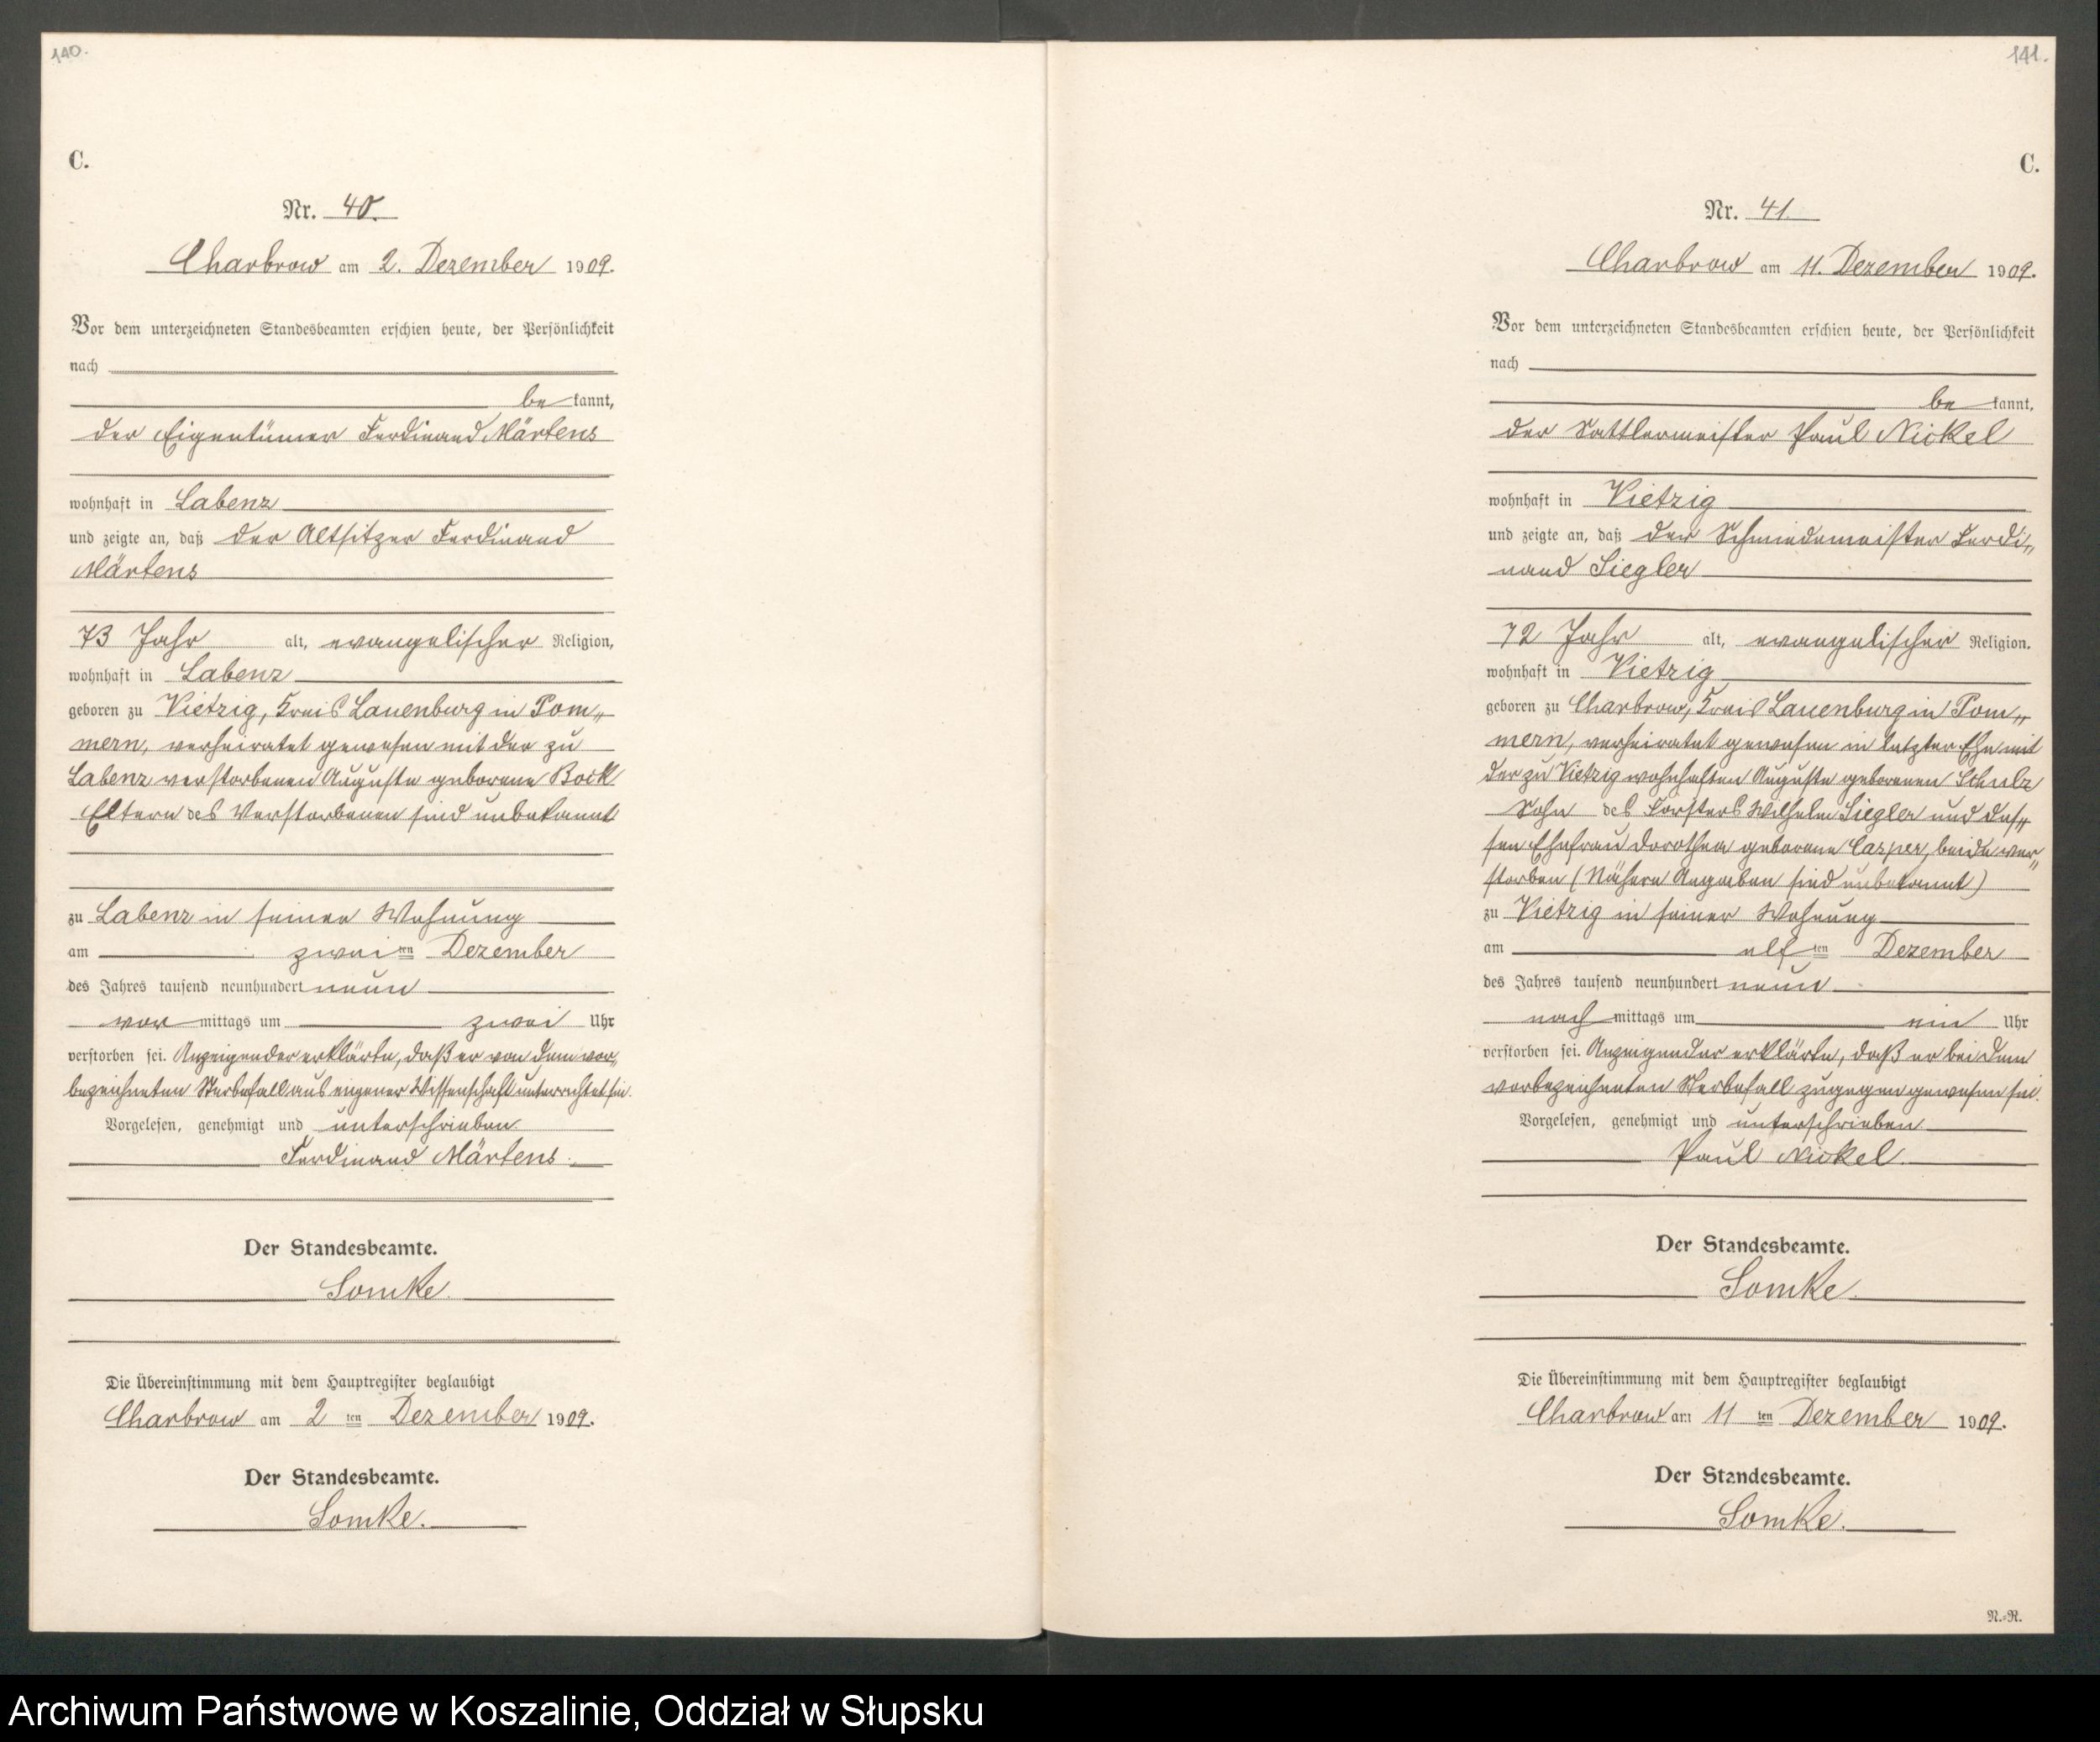 140.
C.
Nr. 40.
Charbrow am 2. Dezember 1909.
Vor dem unterzeichneten Standesbeamten erschien heute, der Persönlichkeit
nach
be kannt,
der Eigentümer Ferdinand Märtens
wohnhaft in Labenz
und zeigte an, daß der Altsitzer Ferdinand
Märtens
73 Jahr alt, evangelischer Religion,
wohnhaft in Labenz
geboren zu Vietzig, Kreis Lauenburg in Pom„
mern, verheiratet gewesen mit der zu
Labenz verstorbenen Auguste geborene Bock
Eltern des Verstorbenen sind unbekannt
zu Labenz in seiner Wohnung
am zwei ten Dezember
des Jahres tausend neunhundert neun
vor mittags um zwei Uhr
verstorben sei. Anzeigender erklärte, daß er von dem vor„
bezeichneten Sterbefall aus eigener Wissenschaft unterrichtet sei.
Vorgelesen, genehmigt und unterschrieben
Ferdinand Märtens.
Der Standesbeamte.
Somke.
Die Übereinstimmung mit dem Hauptregister beglaubigt
Charbrow am 2 ten Dezember 1909.
Der Standesbeamte.
Somke.
141.
C.
Nr. 41.
Charbrow am 11. Dezember 1909.
Vor dem unterzeichneten Standesbeamten erschien heute, der Persönlichkeit
nach
be kannt,
der Sattlermeister Paul Nickel
wohnhaft in Vietzig
und zeigte an, daß der Schmiedemeister Ferdi„
nand Siegler
72 Jahr alt, evangelischer Religion.
wohnhaft in Vietzig
geboren zu Charbrow, Kreis Lauenburg in Pom„
mern, verheiratet gewesen in letzter Ehe mit
der zu Vietzig wohnhaften Auguste geborenen Schulz
Sohn des Försters Wilhelm Siegler und des„
sen Ehefrau Dorothea geborene Casper, beide ver„
storben (Nähere Angaben sind unbekannt)
zu Vietzig in seiner Wohnung
am elf ten Dezember
des Jahres tausend neunhundert neun
nach mittags um ein Uhr
verstorben sei. Anzeigender erklärte, daß er bei dem
vorbezeichneten Sterbefall zugegen gewesen sei.
Vorgelesen, genehmigt und unterschrieben
Paul Nickel.
Der Standesbeamte.
Somke.
Die Übereinstimmung mit dem Hauptregister beglaubigt
Charbrow am 11 ten Dezember 1909.
Der Standesbeamte.
Somke.
N.=R.
Archiwum Państwowe w Koszalinie, Oddział w Słupsku